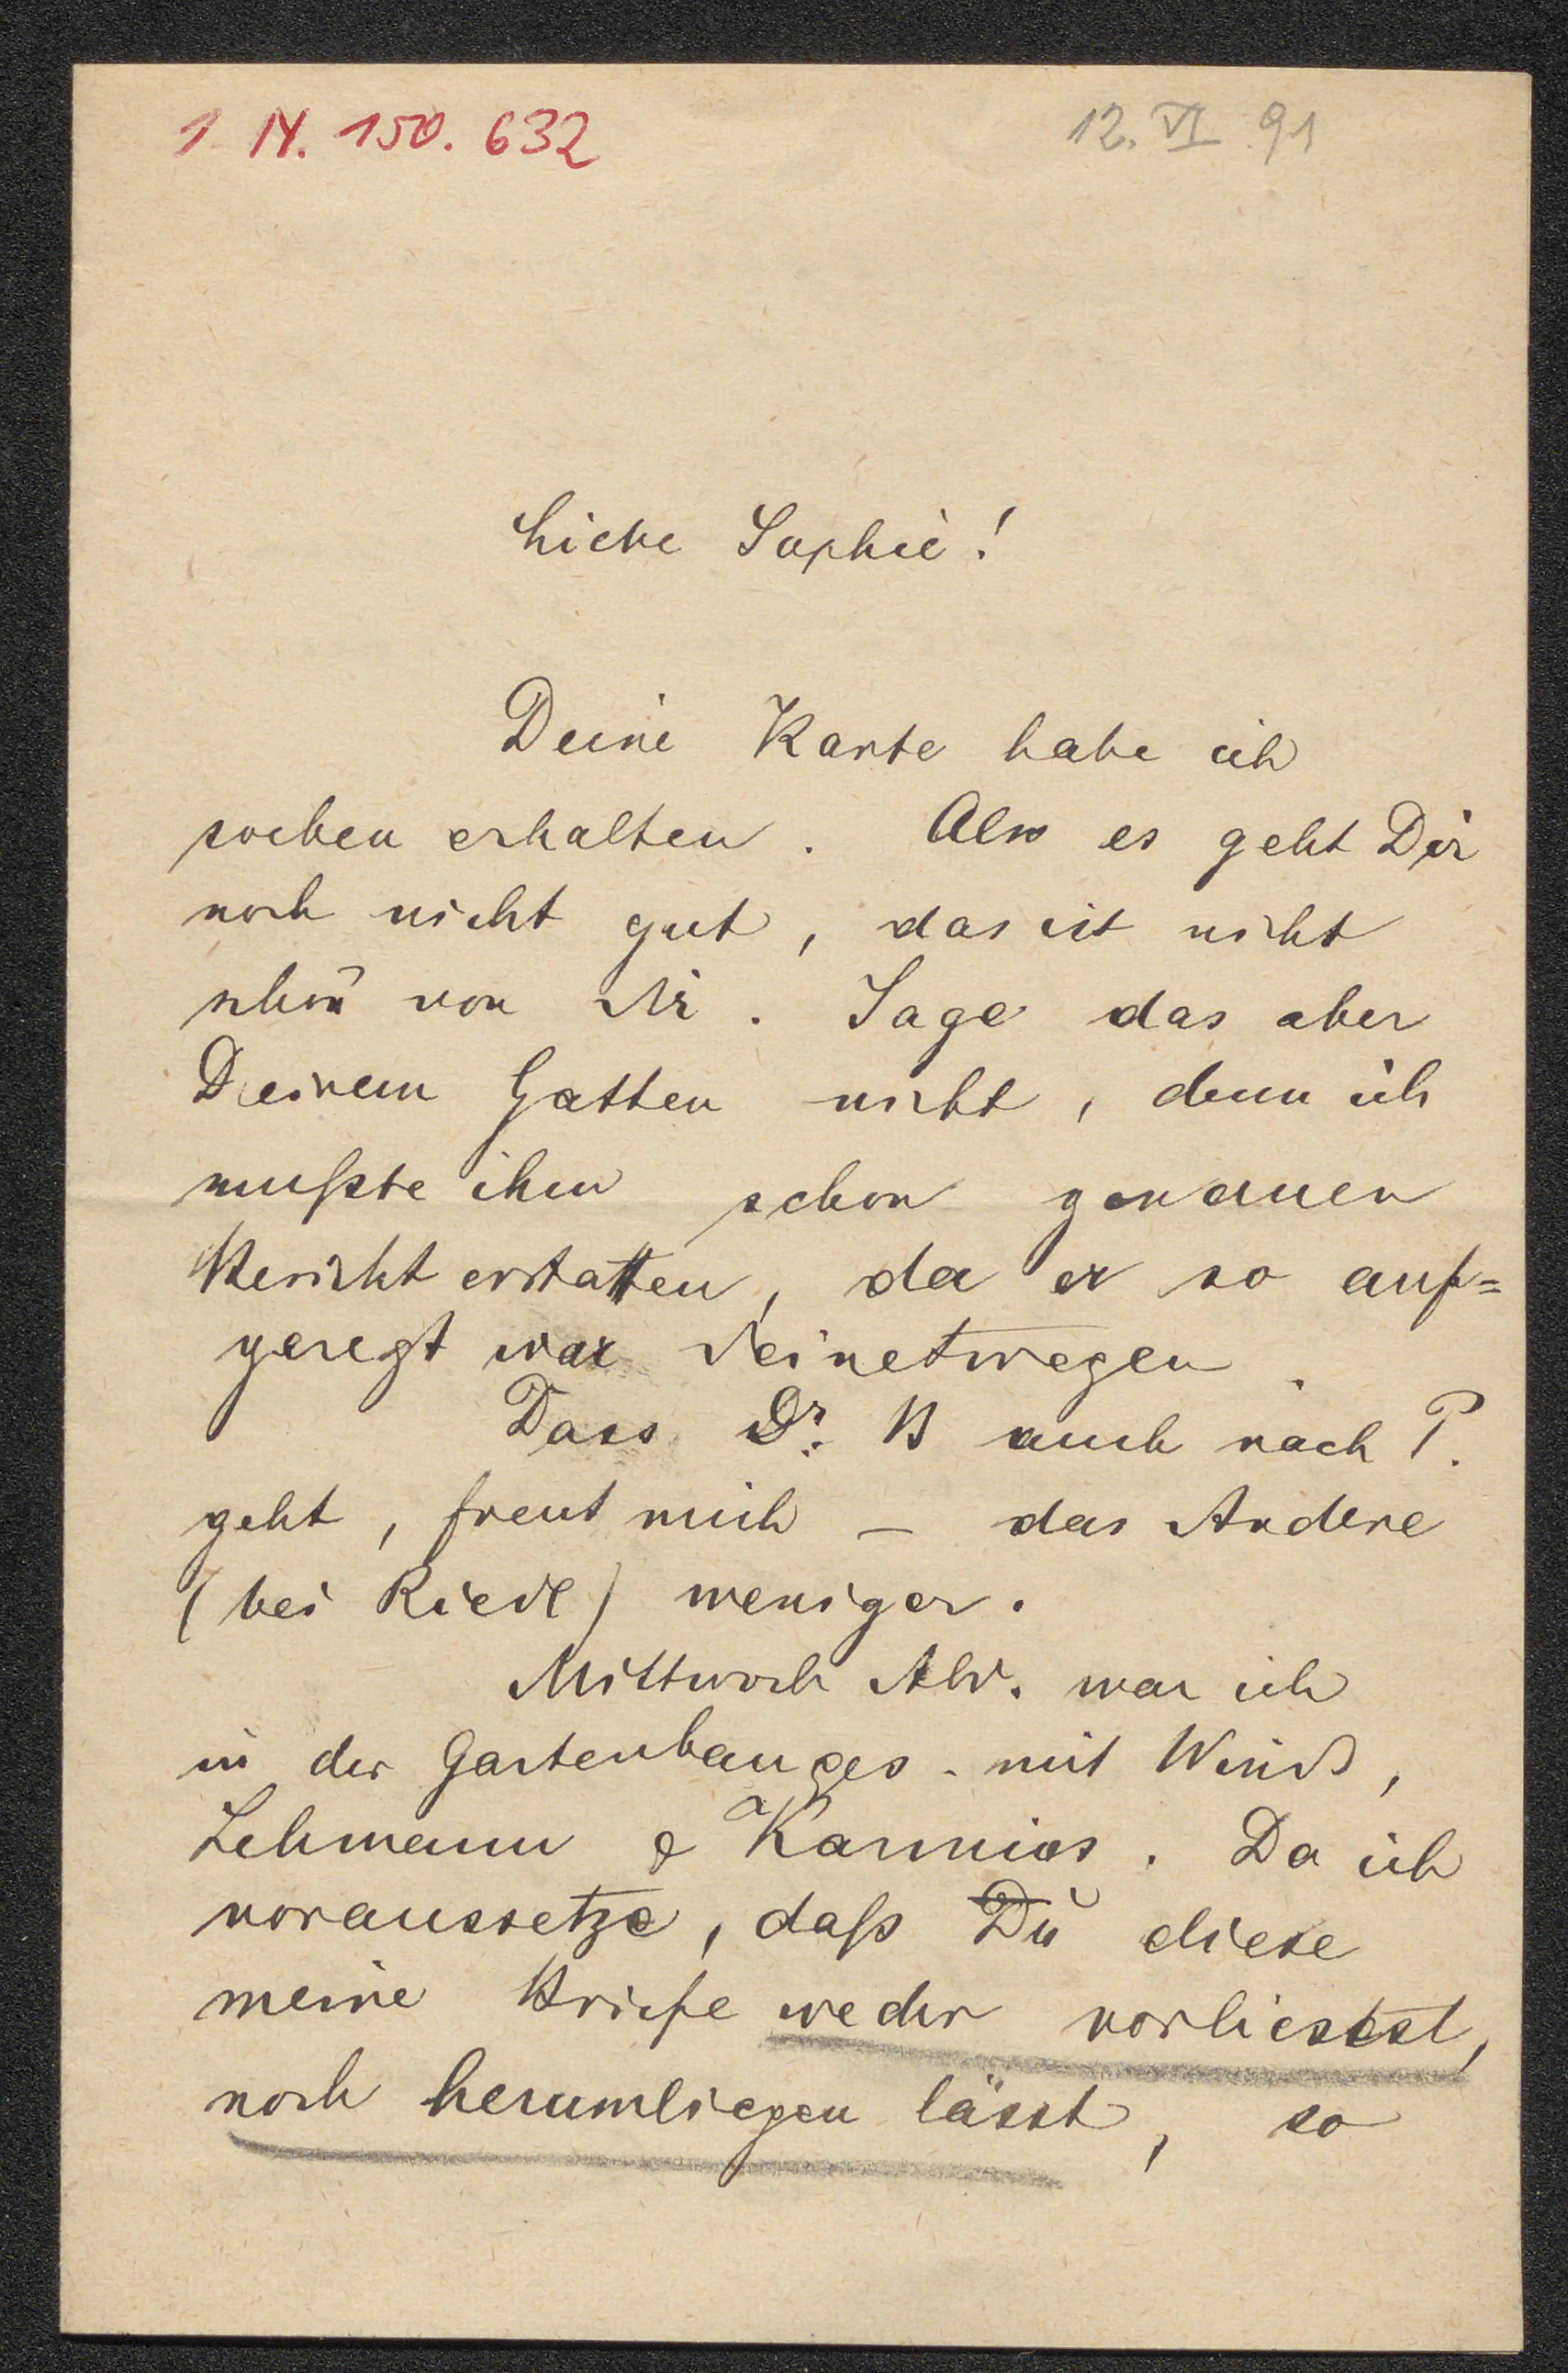 1 N. 150. 632
12. VI. 91
Liebe Sophie!
Deine Karte habe ich
soeben erhalten. Also es geht Dir
noch nicht gut, das ist nicht
schön von Dir. Sage das aber
Deinem Gatten nicht, denn ich
mußte ihm schon genauen
Bericht erstatten, da er so auf=
geregt war Deinetwegen.
Dass Dr. B auch nach P.
geht, freut mich – das Andere
(bei Riedl) weniger.
Mittwoch Abd. war ich
in der Gartenbauges. mit
Lehmann & . Da ich
voraussetze, daß Du diese
meine Briefe weder vorliesest,
noch herumliegen lässt, so